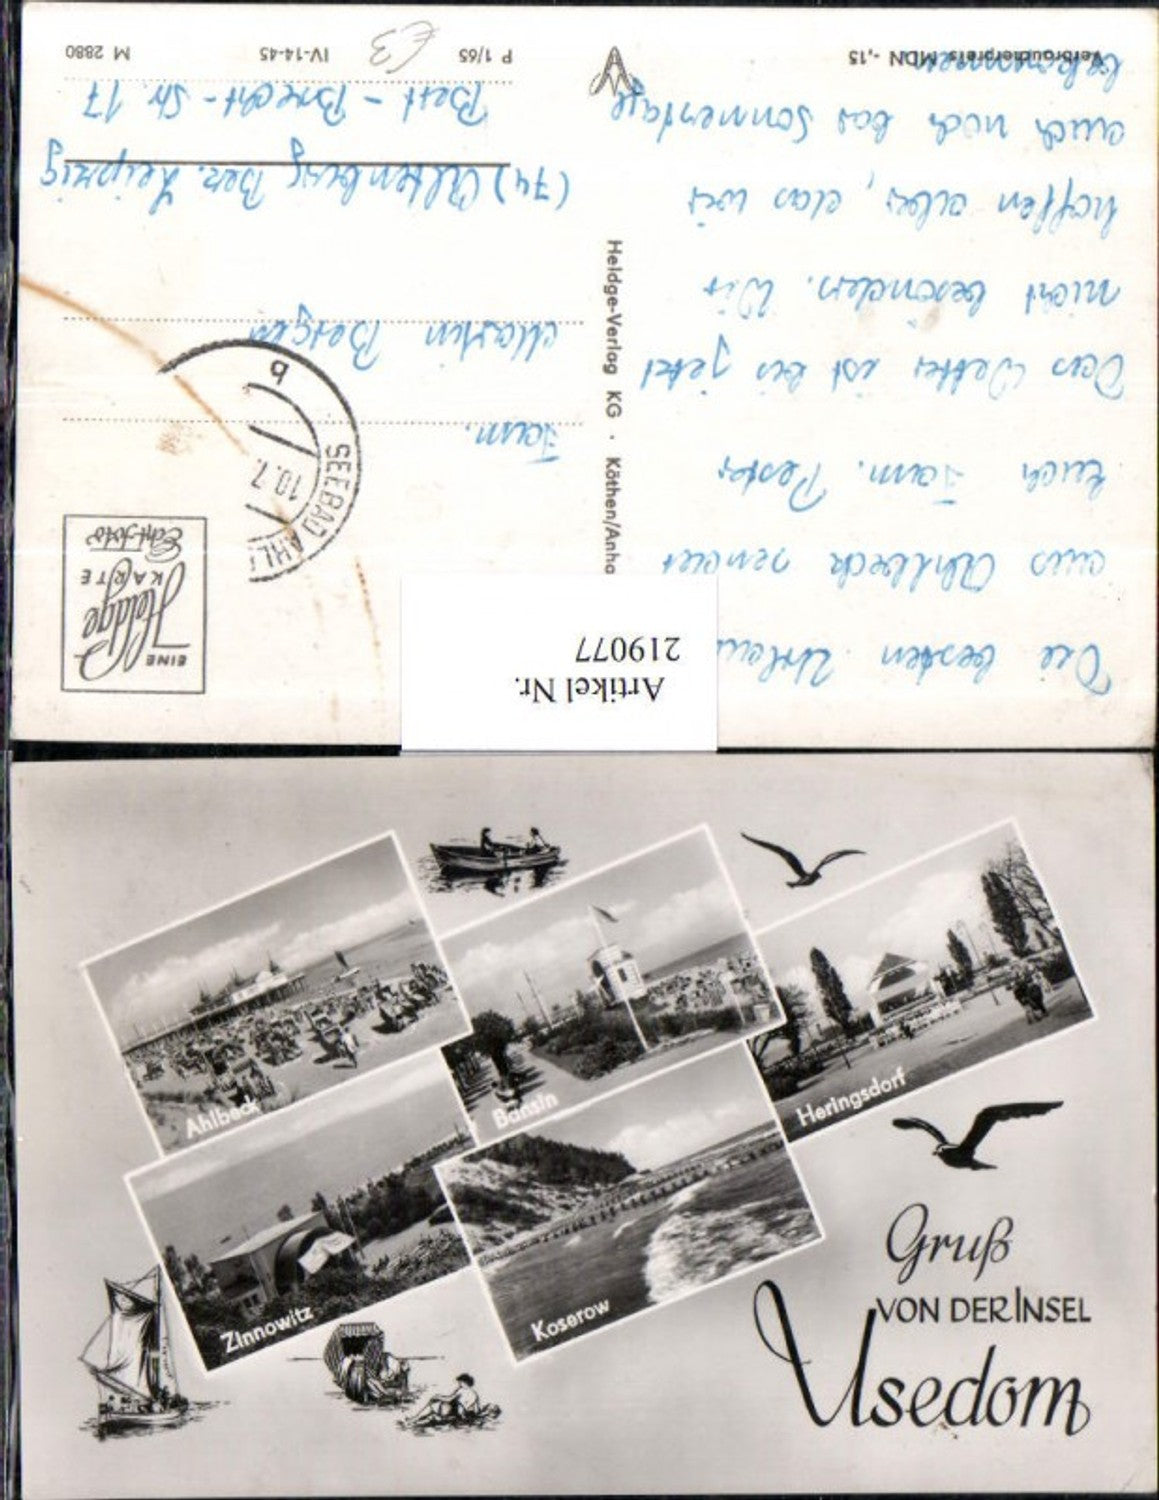 Die besten
aus Ahlbeck sendet
Euch Fam. Pester
Das Wetter ist bis jetzt
nicht besonders. Wir
hoffen aber, das wir
auch noch das Sommertage
bekommen
Verbraucherpreis MDN -,15
Heldge-Verlag KG · Köthen/Anha
EINE
Heldge
KARTE
Echt-foto
SEEBAD AHL
10.7.
b
Fam.
Martin Berger
(74) Altenburg Bez. Leipzig
Bert-Brecht-Str. 17
P 1/65 IV-14-45 M 2880
€3
Artikel Nr.
219077
Ahlbeck
Bansin
Heringsdorf
Zinnowitz
Koserow
Gruß
VON DER INSEL
Usedom